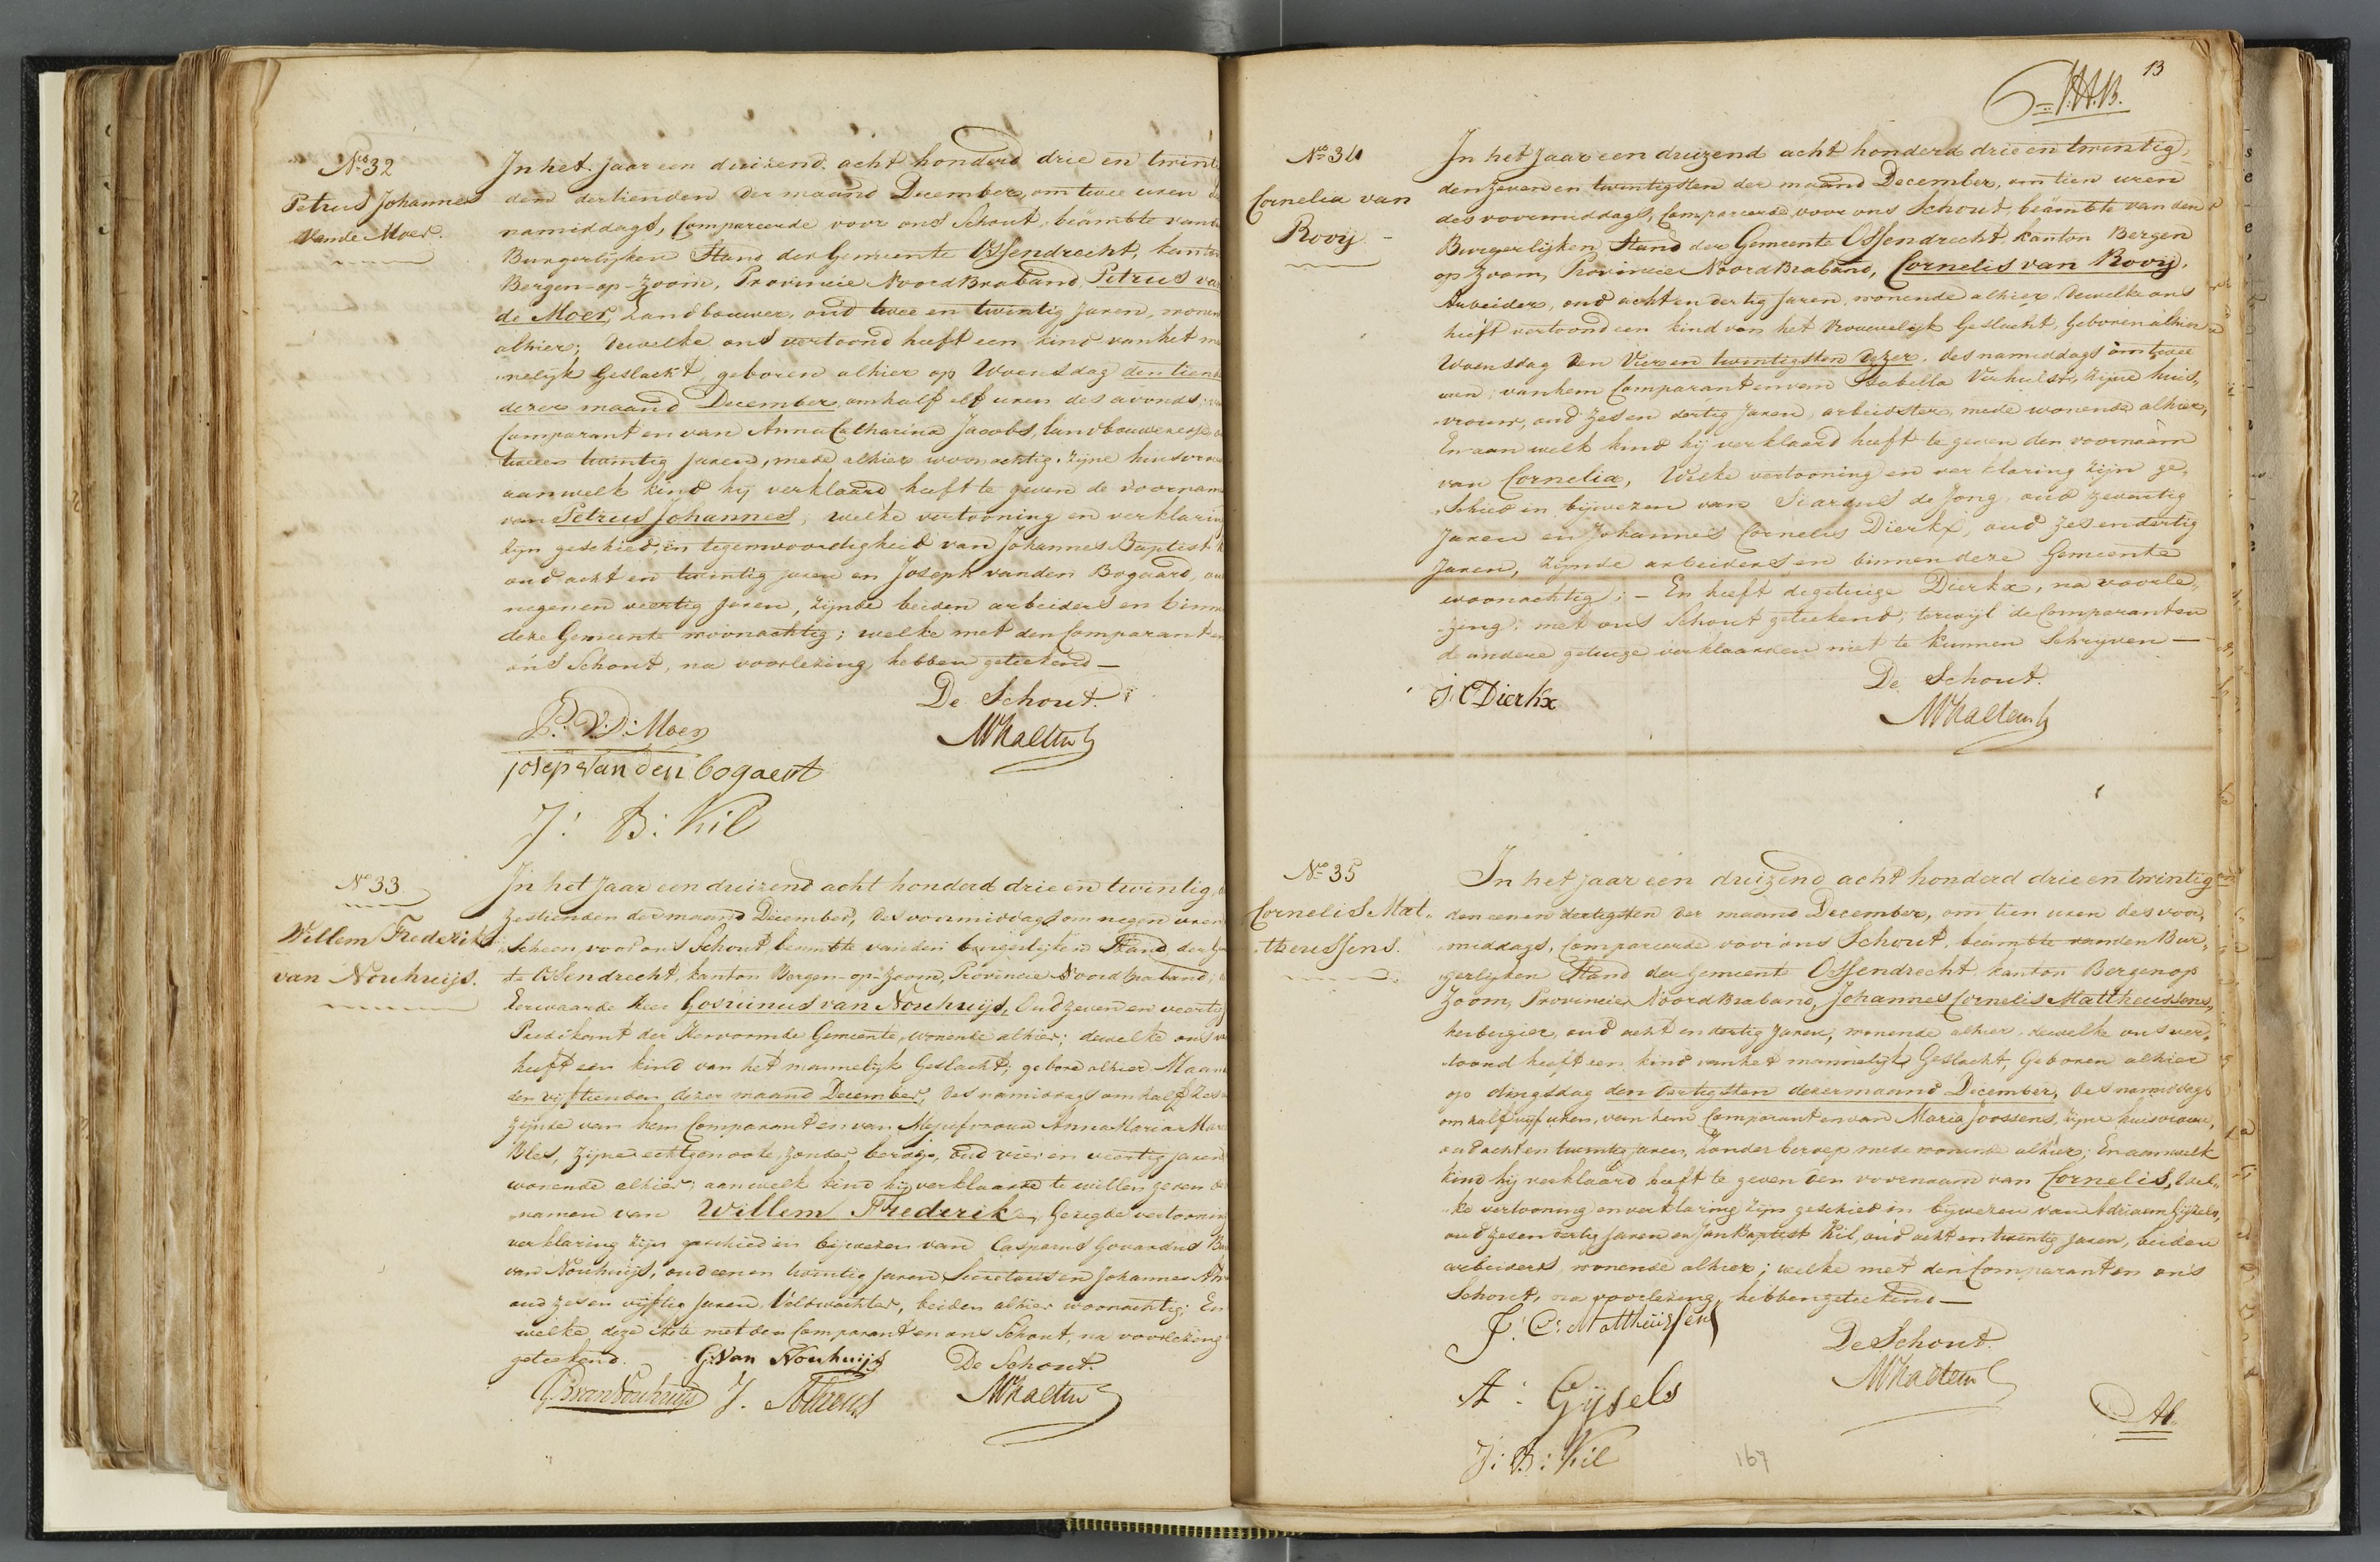 No 32
Petrus Johannes
Vande Moer.
In het jaar een duizend acht honderd drie en twint
den dertienden der maand December, om twee uren
namiddags, Compareerde voor ons Schout, beämbte van
Burgerlijken Stand der Gemeente Ossendrecht, kanton
Bergen-op-Zoom, Provincie Noord Braband, Petrus va
de Moer, Landbouwer, oud twee en twintig Jaren, wonen
alhier; dewelke ons vertoond heeft een kind van het m
nelijk Geslacht, geboren alhier op Woensdag den tiend
dezer maand December, om half elf uren des avonds
Comparant en van Anna Catharina Jacobs, landbouweresse
twee en twintig Jaren, mede alhier woonachtig, zijne huisvrou
aan welk kind hij verklaard heeft te geven de voornam
van Petrus Johannes; welke vertooning en verklarin
zijn geschied, in tegenwoordigheid van Johannes Baptist K
oud acht en twintig jaren en Joseph vanden Bogaard, ou
negen en veertig Jaren, zijnde beiden arbeiders en binn
deze Gemeente woonachtig; welke met den Comparant en
ons Schout, na voorlezing, hebben geteekend —
De Schout.
P: V: D: Moer
josep Van den bogaert
J: B: Kil
No 33
Willem Frederik
van Nouhuijs.
In het Jaar een duizend acht honderd drie en twintig,
Zestienden der maand December, des voormiddags om negen uren
scheen, voor ons Schout beambte vanden burgerlijken Stand der Ge
te Ossendrecht, kanton Bergen-op-Zoom, Provincie Noord braband;
Eerwaarde Heer Gosuinus van Nouhuijs, Oud zeven en veertig
Predikant der Hervormde Gemeente, wonende alhier; dewelke ons
heeft een kind van het mannelijk Geslacht; gebore alhier Maan
den vijftienden dezer maand December, des namiddags om half zes
zijnde van hem Comparant en van Mejufvrouw Anna Maria Mar
Bles, zijne echtgenoote, zonder beroep, Oud vier en veertig jaren
wonende alhier; aan welk kind hij verklaarde te willen geven de
namen van Willem Frederik, Gezegde vertooning
verklaring zijn geschied in bijwezen van Casparus Govardus
van Nouhuijs, oud een en twintig Jaren, Secretaris en Johannes
oud zes en vijftig Jaren, Veldwachter, beiden alhier woonachtig; En
welke deze Akte met den Comparant en ons Schout, na voorlezing
geteekend.
G: Van Nouhuijs
De Schout.
13
No 34
Cornelia van
Rooij
In het Jaar een duizend acht honderd drie en twintig,
den zeven en twintigsten der maand December, om tien uren
des voormiddags, Compareerde, voor ons Schout, beämbte van den
Burgerlijken Stand der Gemeente Ossendrecht, kanton Bergen
op Zoom, Provincie Noord Braband, Cornelis van Rooij,
Arbeider, oud acht en dertig Jaren, wonende alhier, dewelke ons
heeft vertoond een kind van het Vrouwelijk Geslacht, Geboren alhier
Woensdag den Vier en twintigsten dezer, des namiddags om twee
uren; van hem Comparant en van Isabella Verhulst, zijne huis,,
vrouw, oud Zes en dertig Jaren, arbeidster, mede wonende alhier,
En aan welk kind hij verklaard heeft te geven den voornaam
van Cornelia, Welke vertooning en verklaring zijn ge,,
schied in bijwezen van de Jong, oud zeventig
Jaren en Johannes Cornelis Dierkx, oud zes en dertig
Jaren, zijnde arbeiders en binnen deze Gemeente
woonachtig; — En heeft de getuige Dierkx, na voorle,,
zing; met ons Schout geteekend, terwijl de Comparant en
de andere getuige verklaarden niet te kunnen Schrijven —
De Schout.
J: C Dierkx
No 35
Cornelis Mat,,
theussens.
In het jaar een duizend acht honderd drie en twintig
den een en dertigsten der maand December, om tien uren des voor,,
middags, Compareerde voor ons Schout, beämbte vanden Bur,,
gerlijken Stand der Gemeente Ossendrecht, kanton Bergen op
Zoom, Provincie Noord Braband, Johannes Cornelis Mattheussens,
herbergier, oud acht en dertig Jaren, wonende alhier, dewelke ons ver,,
toond heeft een kind van het mannelijk Geslacht, Geboren alhier
op dingsdag den dertigsten dezer maand December, des namiddags
om half vijf uren, van hem Comparant en van Maria Joossens, zijne huisvrouw,
oud acht en twintig jaren, Zonder beroep mede wonende alhier; En aan welk
kind hij verklaard heeft te geven den voornaam van Cornelis, Wel,,
ke vertooning en verklaring zijn geschied in bijwezen van Adriaan Gijzels,
oud zes en dertig Jaren en Jan Baptist Kil, oud acht en twintig Jaren, beiden
arbeiders, wonende alhier; welke met den Comparant en ons
Schout, na voorlezing, hebben geteekend —
J: C: Mattheussens
De Schout.
A: Gijsels
J: B: Kil
167